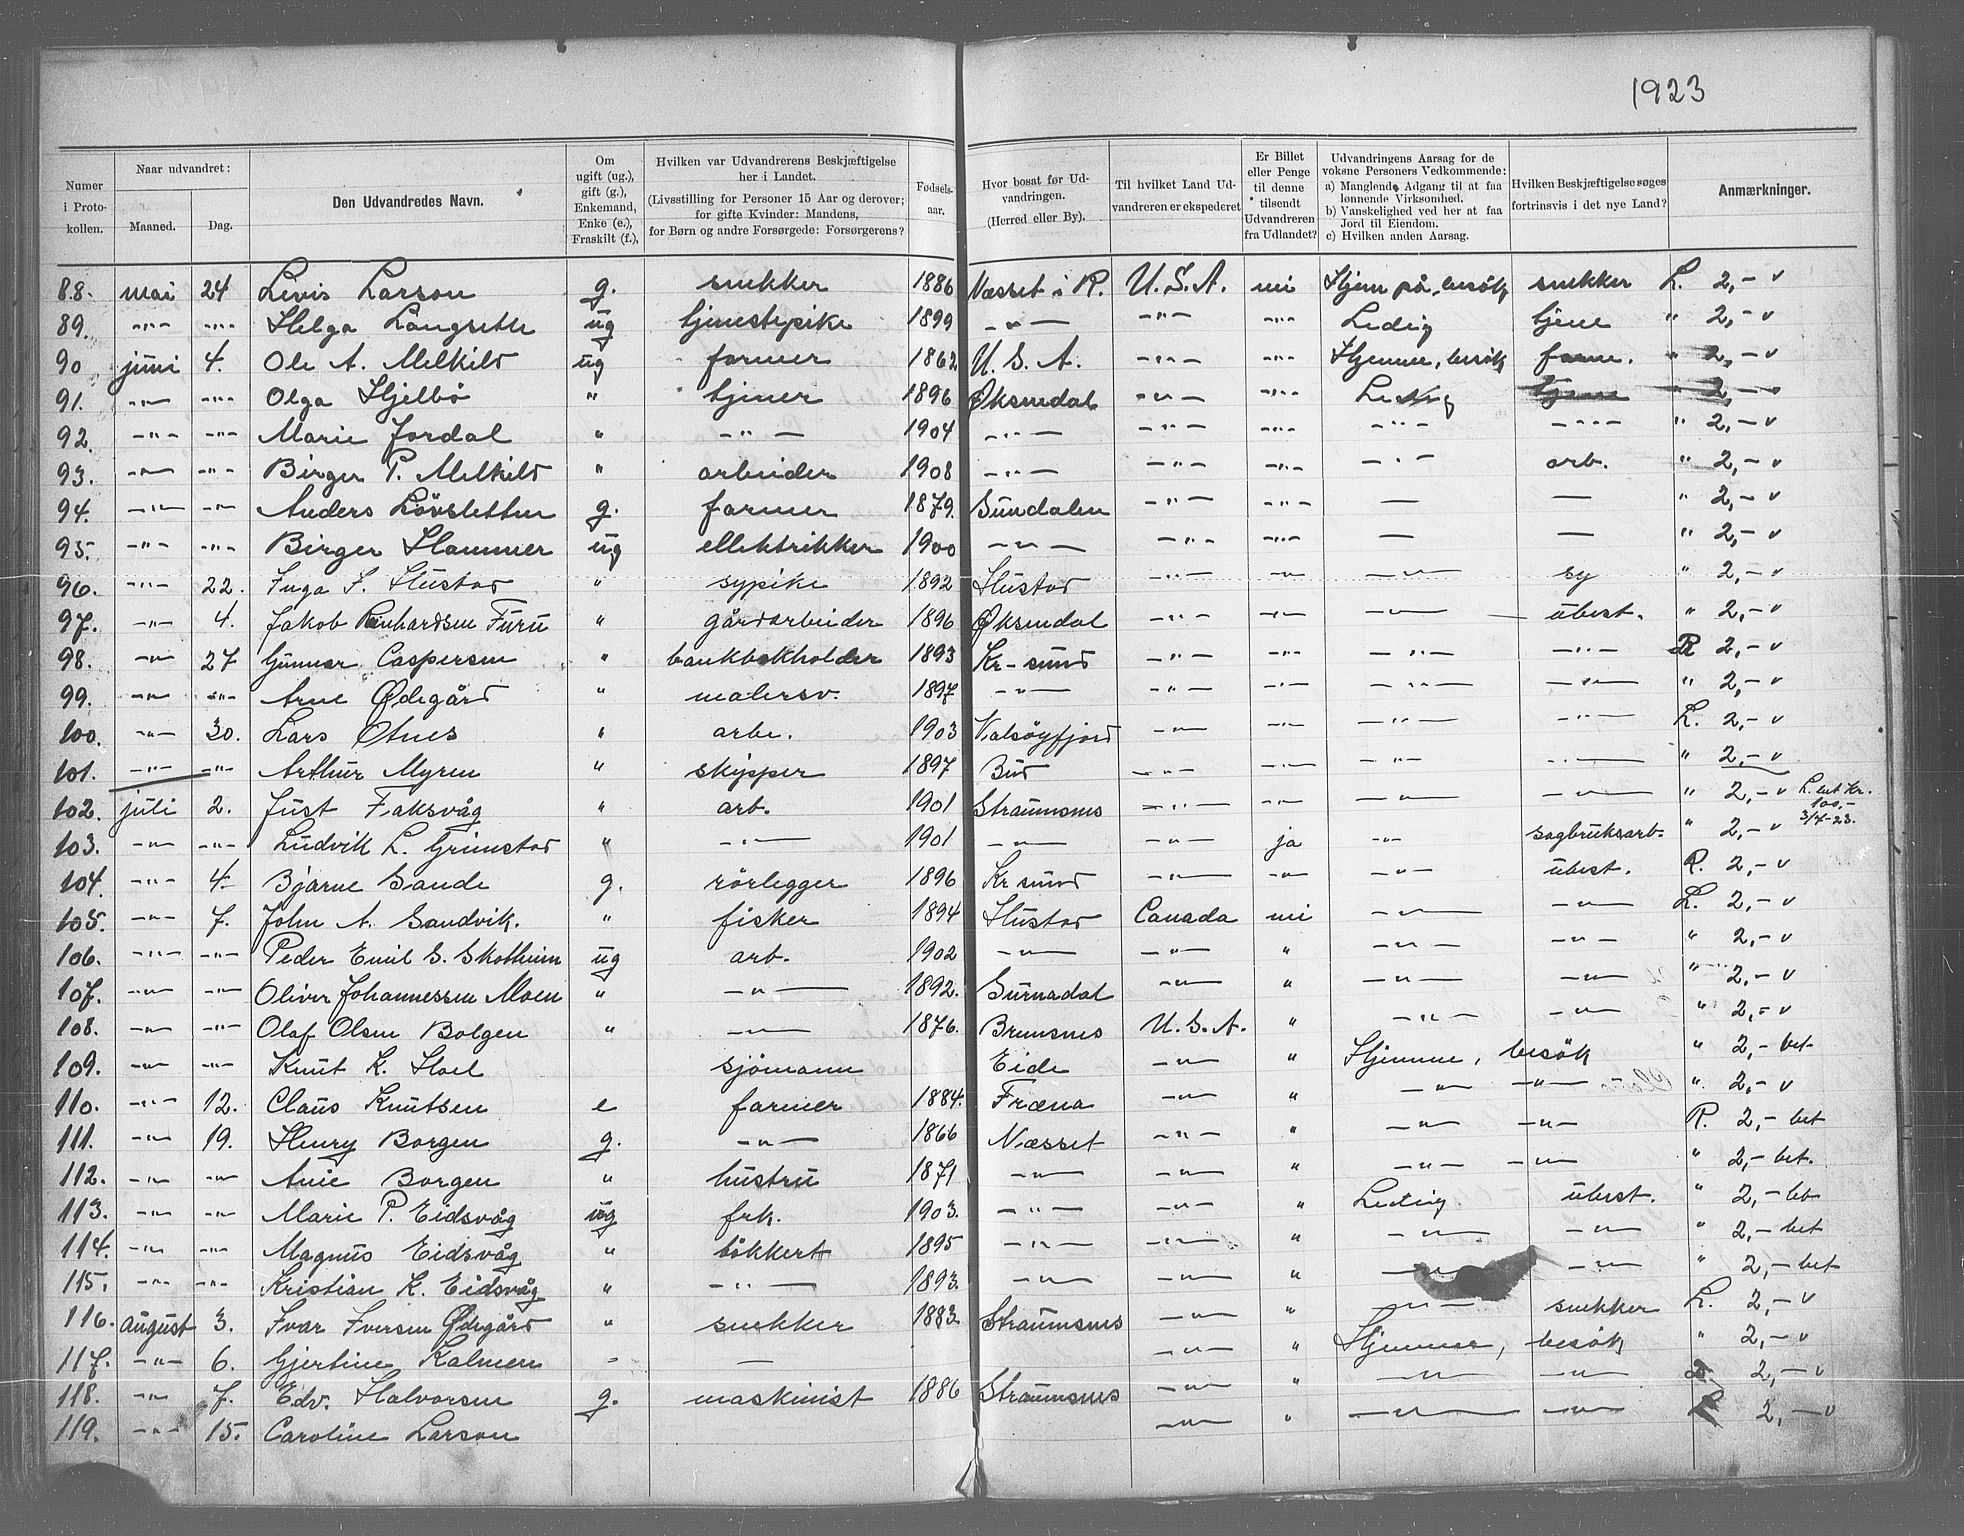 1923
Numer i Protokollen. | Naar udvandret: Maaned. | Dag. | Den Udvandredes Navn. | Om ugift (ug.), gift (g.), Enkemand, Enke (e.), Fraskilt (f.), | Hvilken var Udvandrerens Beskjæftigelse her i Landet. (Livsstilling for Personer 15 Aar og derover; for gifte Kvinder: Mandens, for Børn og andre Forsørgede: Forsørgerens? | Fødselsaar. | Hvor bosat før Udvandringen. (Herred eller By). | Til hvilket Land Udvandreren er ekspederet | Er Billet eller Penge til denne tilsendt Udvandreren fra Udlandet? | Udvandringens Aarsag for de voksne Personers Vedkommende: a) Manglende Adgang til at faa lønnende Virksomhed. b) Vanskelighed ved her at faa Jord til Eiendom. c) Hvilken anden Aarsag. | Hvilken Beskjæftigelse søges fortrinsvis i det nye Land? | Anmærkninger.
88. mai 24 Levis Larson g. snekker 1886 Næsset i R. U.S.A. nei Hjem på besök snekker L. 2,- v
89. -"- -"- Helga Langsette ug tjenestepike 1899 -"- -"- -"- Ledig tjene " 2,- v
90 juni 4. Ole A. Melkild ug farmer 1862 U.S.A. -"- -"- Hjemme, besök farme. " 2,- v
91. -"- -"- Olga Hjelbö " tjener 1896 Øksendal -"- -"- Ledig tjene " 2,- v
92. -"- -"- Marie Jordal " -"- 1904 -"- -"- -"- -"- -"- " 2,- v
93. -"- -"- Birger P. Melkild " arbeider 1908 -"- -"- -"- -"- arb. " 2,- v
94. -"- -"- Anders Lövsletten g. farmer 1879. Sundalen -"- -"- — — " 2,- v
95. -"- -"- Birger Hammer ug ellektrikker 1900 -"- -"- -"- — — " 2,- v
96. -"- 22. Inga J. Hustad " sypike 1892 Hustad -"- -"- -"- sy " 2,- v
97. -"- 4. Jakob Renhardsen Furu " gårdarbeider 1896 Øksendal -"- -"- -"- ubest. " 2,- v
98. -"- 27 Gunnar Caspersen " bankbokholder 1893 Kr-sund -"- -"- -"- -"- R 2,- v
99. -"- -"- Arne Ødegård " malersv. 1897 -"- -"- -"- -"- -"- " 2,- v
100. -"- 30. Lars Otnes " arbe. 1903 Valsöyfjord -"- -"- -"- -"- L. 2,- v
101. -"- -"- Arthur Myren " skipper 1897 Bud -"- -"- -"- -"- " 2,- v
102. juli 2. Just Faksvåg " arb. 1901 Straumsnes -"- -"- -"- -"- " 2,- v L. bet Kr. 100,- 3/4-23.
103. -"- -"- Ludvik L. Grimstad " -"- 1901 -"- -"- ja -"- sagbruksarb. " 2,- v
104. -"- 4. Bjarne Sande g. rörlegger 1896 Kr sund -"- -"- -"- ubest. R. 2,- v
105. -"- 7. John A. Sandvik. " fisker 1894 Hustad Canada nei -"- -"- L. 2,- v
106. -"- -"- Peder Emil S. Skotheim ug arb. 1902 -"- -"- " -"- -"- " 2,- v
107. -"- -"- Oliver Johannessen Moen " -"- 1892. Surnadal -"- " -"- -"- " 2,- v
108. -"- -"- Olaf Olsen Bolgen " -"- 1876. Bremsnes U.S.A. " -"- -"- " 2,- v
109. -"- -"- Knut K. Hoel sjömann Eide -"- " Hjemme, besök " 2,- bet
110. -"- 12. Claus Knutsen e farmer 1884. Fræna -"- " -"- -"- " 2,- v
111. -"- 19. Henry Borgen g. -"- 1866 Næsset -"- " -"- -"- R. 2,- bet
112. -"- -"- Anie Borgen " hustru 1871 -"- -"- " -"- -"- " 2,- bet.
113. -"- -"- Marie P. Eidsvåg ug frk. 1903. -"- -"- " Ledig ubest. " 2,- bet
114. -"- -"- Magnus Eidsvåg " bökkert 1895 -"- -"- " -"- -"- " 2,- bet
115. -"- -"- Kristian K. Eidsvåg " -"- 1893. -"- -"- " -"- -"- " 2,- bet
116. august 3. Ivar Iversen Ødegård " snekker 1883. Straumsnes -"- " -"- snekker L. 2,- v
117. -"- 6. Gjertine Kalmern - — -"- " Hjemme, besök " 2,- v
118. -"- 7. Edv. Halvorsen g. maskinist 1886 Straumsnes -"- " -"- -"- 2,- v
119. -"- 15. Caroline Larson -"- " -"- -"- R 2,- v